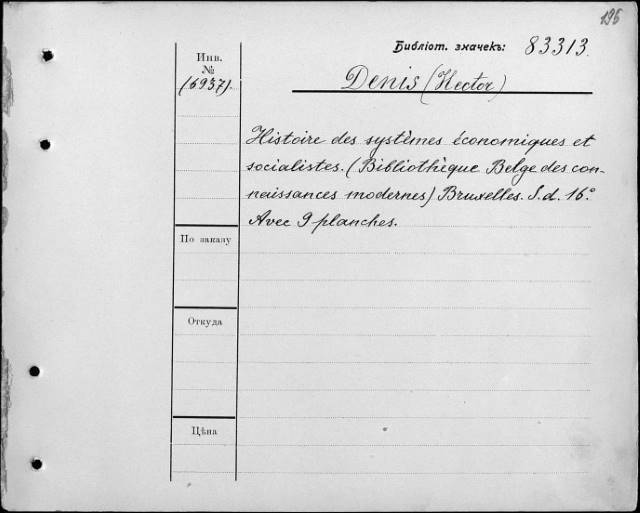 195
Библіот. значекъ: 83313.
Инв.
№
(6937).
Denis (Hector)
Histoire des systèmes économiques et
socialistes. (Bibliothèque Belge des con-
naissances modernes) Bruxelles. S.d. 16º.
Avec 9 planches.
По заказу
Откуда
Цѣна